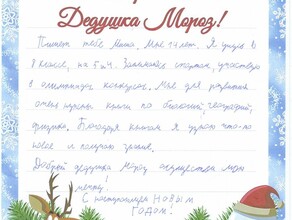 Дедушка Мороз!
Пишет тебе Миша. Мне 14 лет. Я учусь в
8 классе, на 5 и 4. Занимаюсь спортом, участвую
в олимпиадах конкурсах. Мне для развития
очень нужны книги по биологии, географии,
физике. Благодаря книгам я узнаю что-то
новое и получаю знания.
Добрый дедушка Мороз осуществи мою
мечту!
С наступающим НОВЫМ
ГОДОМ!